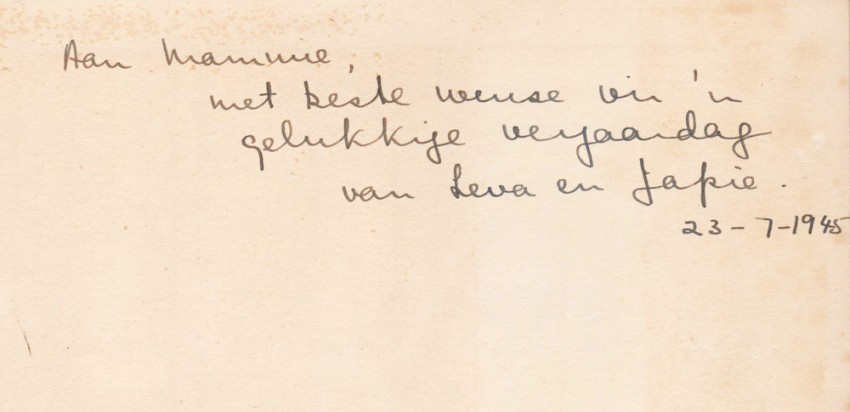 Aan Mammie,
met beste wense vir 'n
gelukkige verjaardag
van Leva en Japie.
23-7-1945